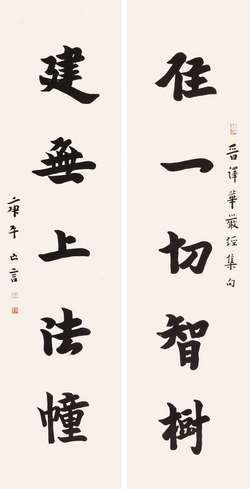 住一切智樹
晉譯華嚴經集句
建無上法幢
庚午 言